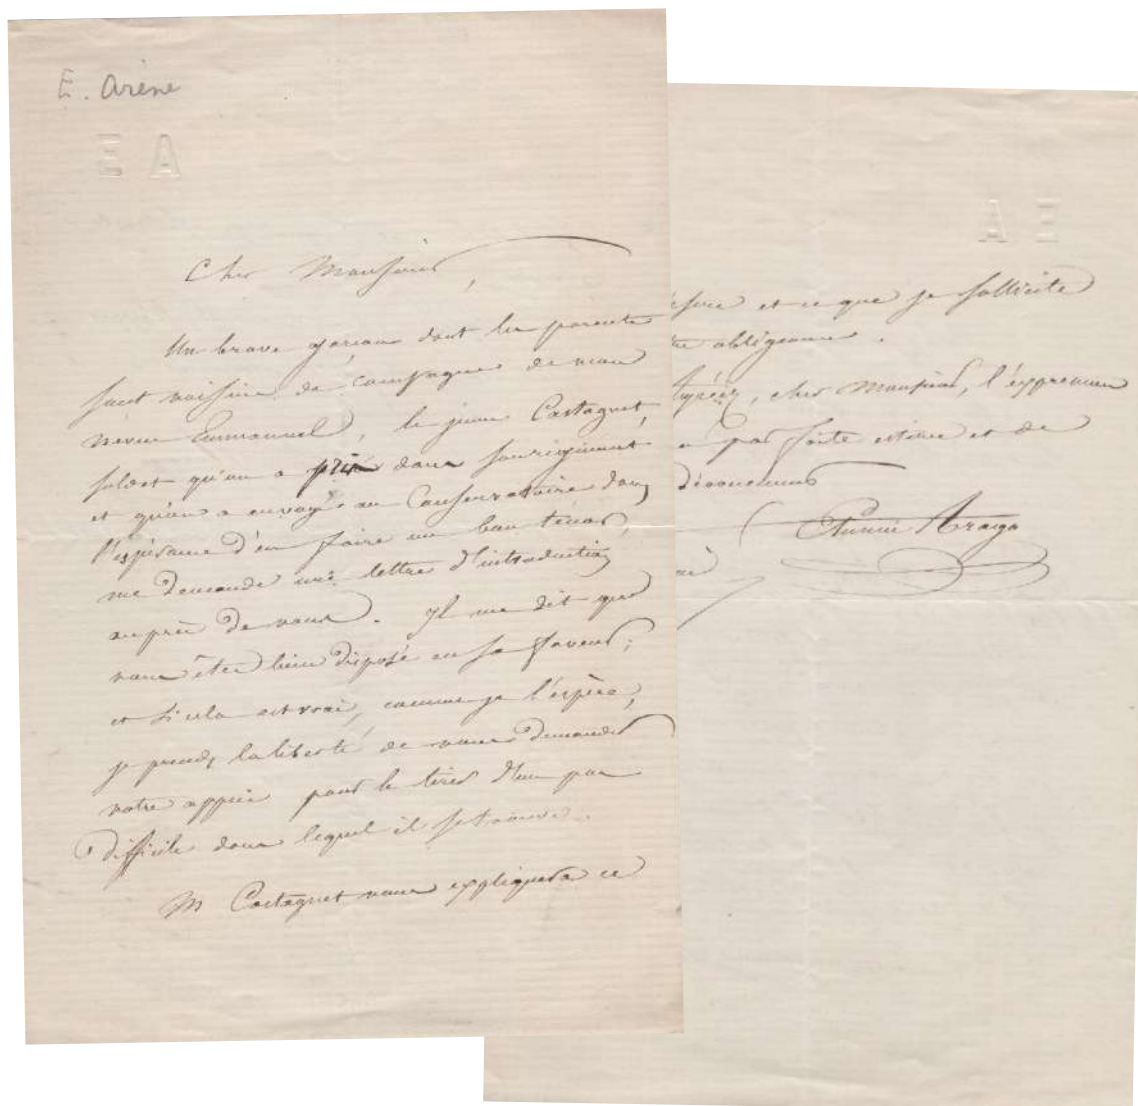 E. Arène
E A
Cher Monsieur,
Un brave garçon dont les parents
sont voisins de campagne de mon
neveu Emmanuel, le jeune Castagnet,
soldat qu'on a pris dans son régiment
et qu'on a envoyé au Conservatoire dans
l'espérance d'en faire un bon ténor,
me demande une lettre d'introduction
auprès de vous. Il me dit que
vous êtes bien disposé en sa faveur;
et si cela est vrai, comme je l'espère,
je prends la liberté de vous demander
votre appui pour le tirer d'un pas
difficile dans lequel il se trouve.
M Castagnet vous expliquera ce
A E
et ce que je sollicite
obligeance.
Agréez, cher Monsieur, l'expression
parfaite estime et de
dévouement
Etienne Arago